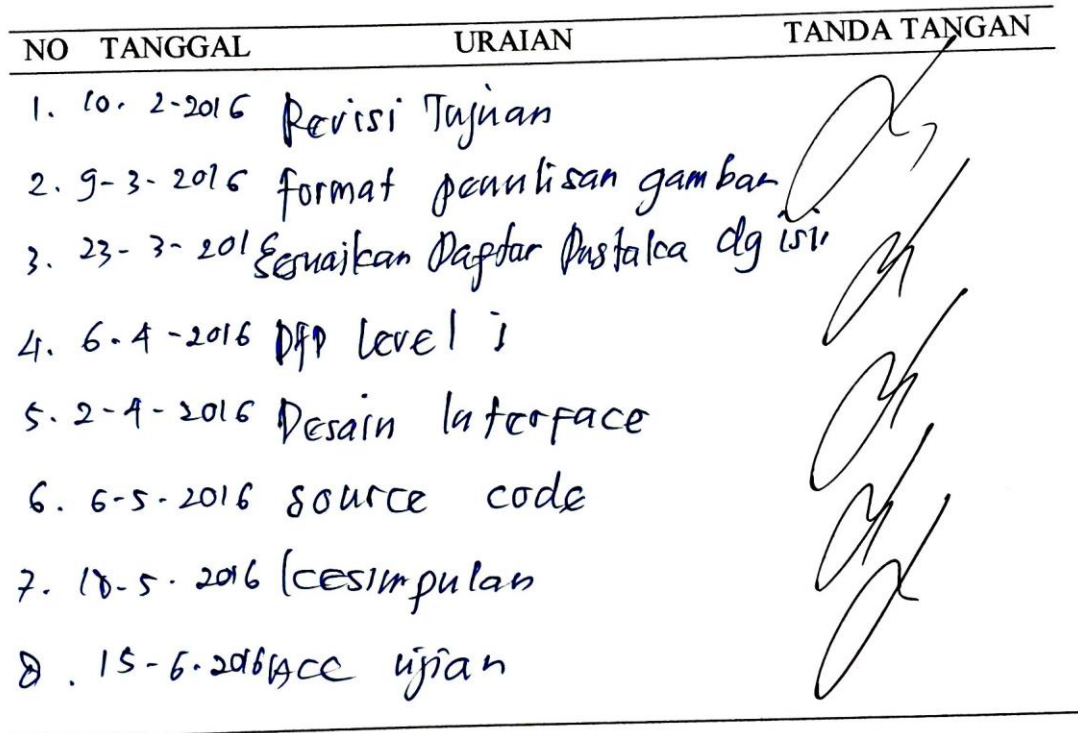 NO TANGGAL URAIAN TANDA TANGAN
1. 10. 2-2016 Revisi Tujuan
2. 9-3-2016 format penulisan gambar
3. 23-3-201 Sesuaikan Daftar Pustaka dg isi
4. 6.4-2016 DFD Level 1
5. 2-4-2016 Desain Interface
6. 6-5-2016 source code
7. 18-5.2016 Kesimpulan
8. 15-6.2016 ACC ujian